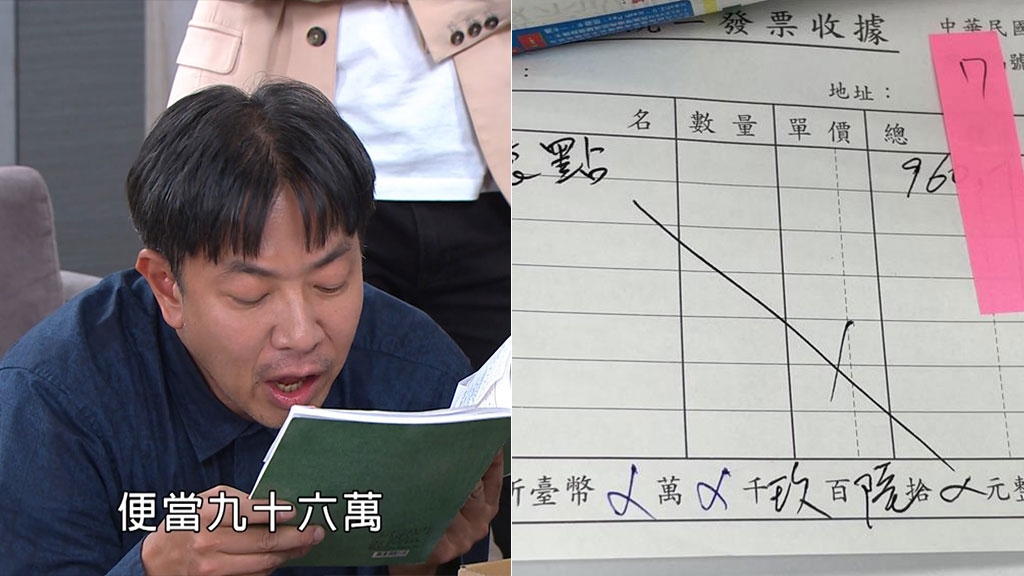 便當九十六萬
發票收據
中華民國
號
7
地址：
名 數量 單價 總
點 960
新臺幣 ㄨ 萬 ㄨ 千 玖 百 陸 拾 ㄨ 元整